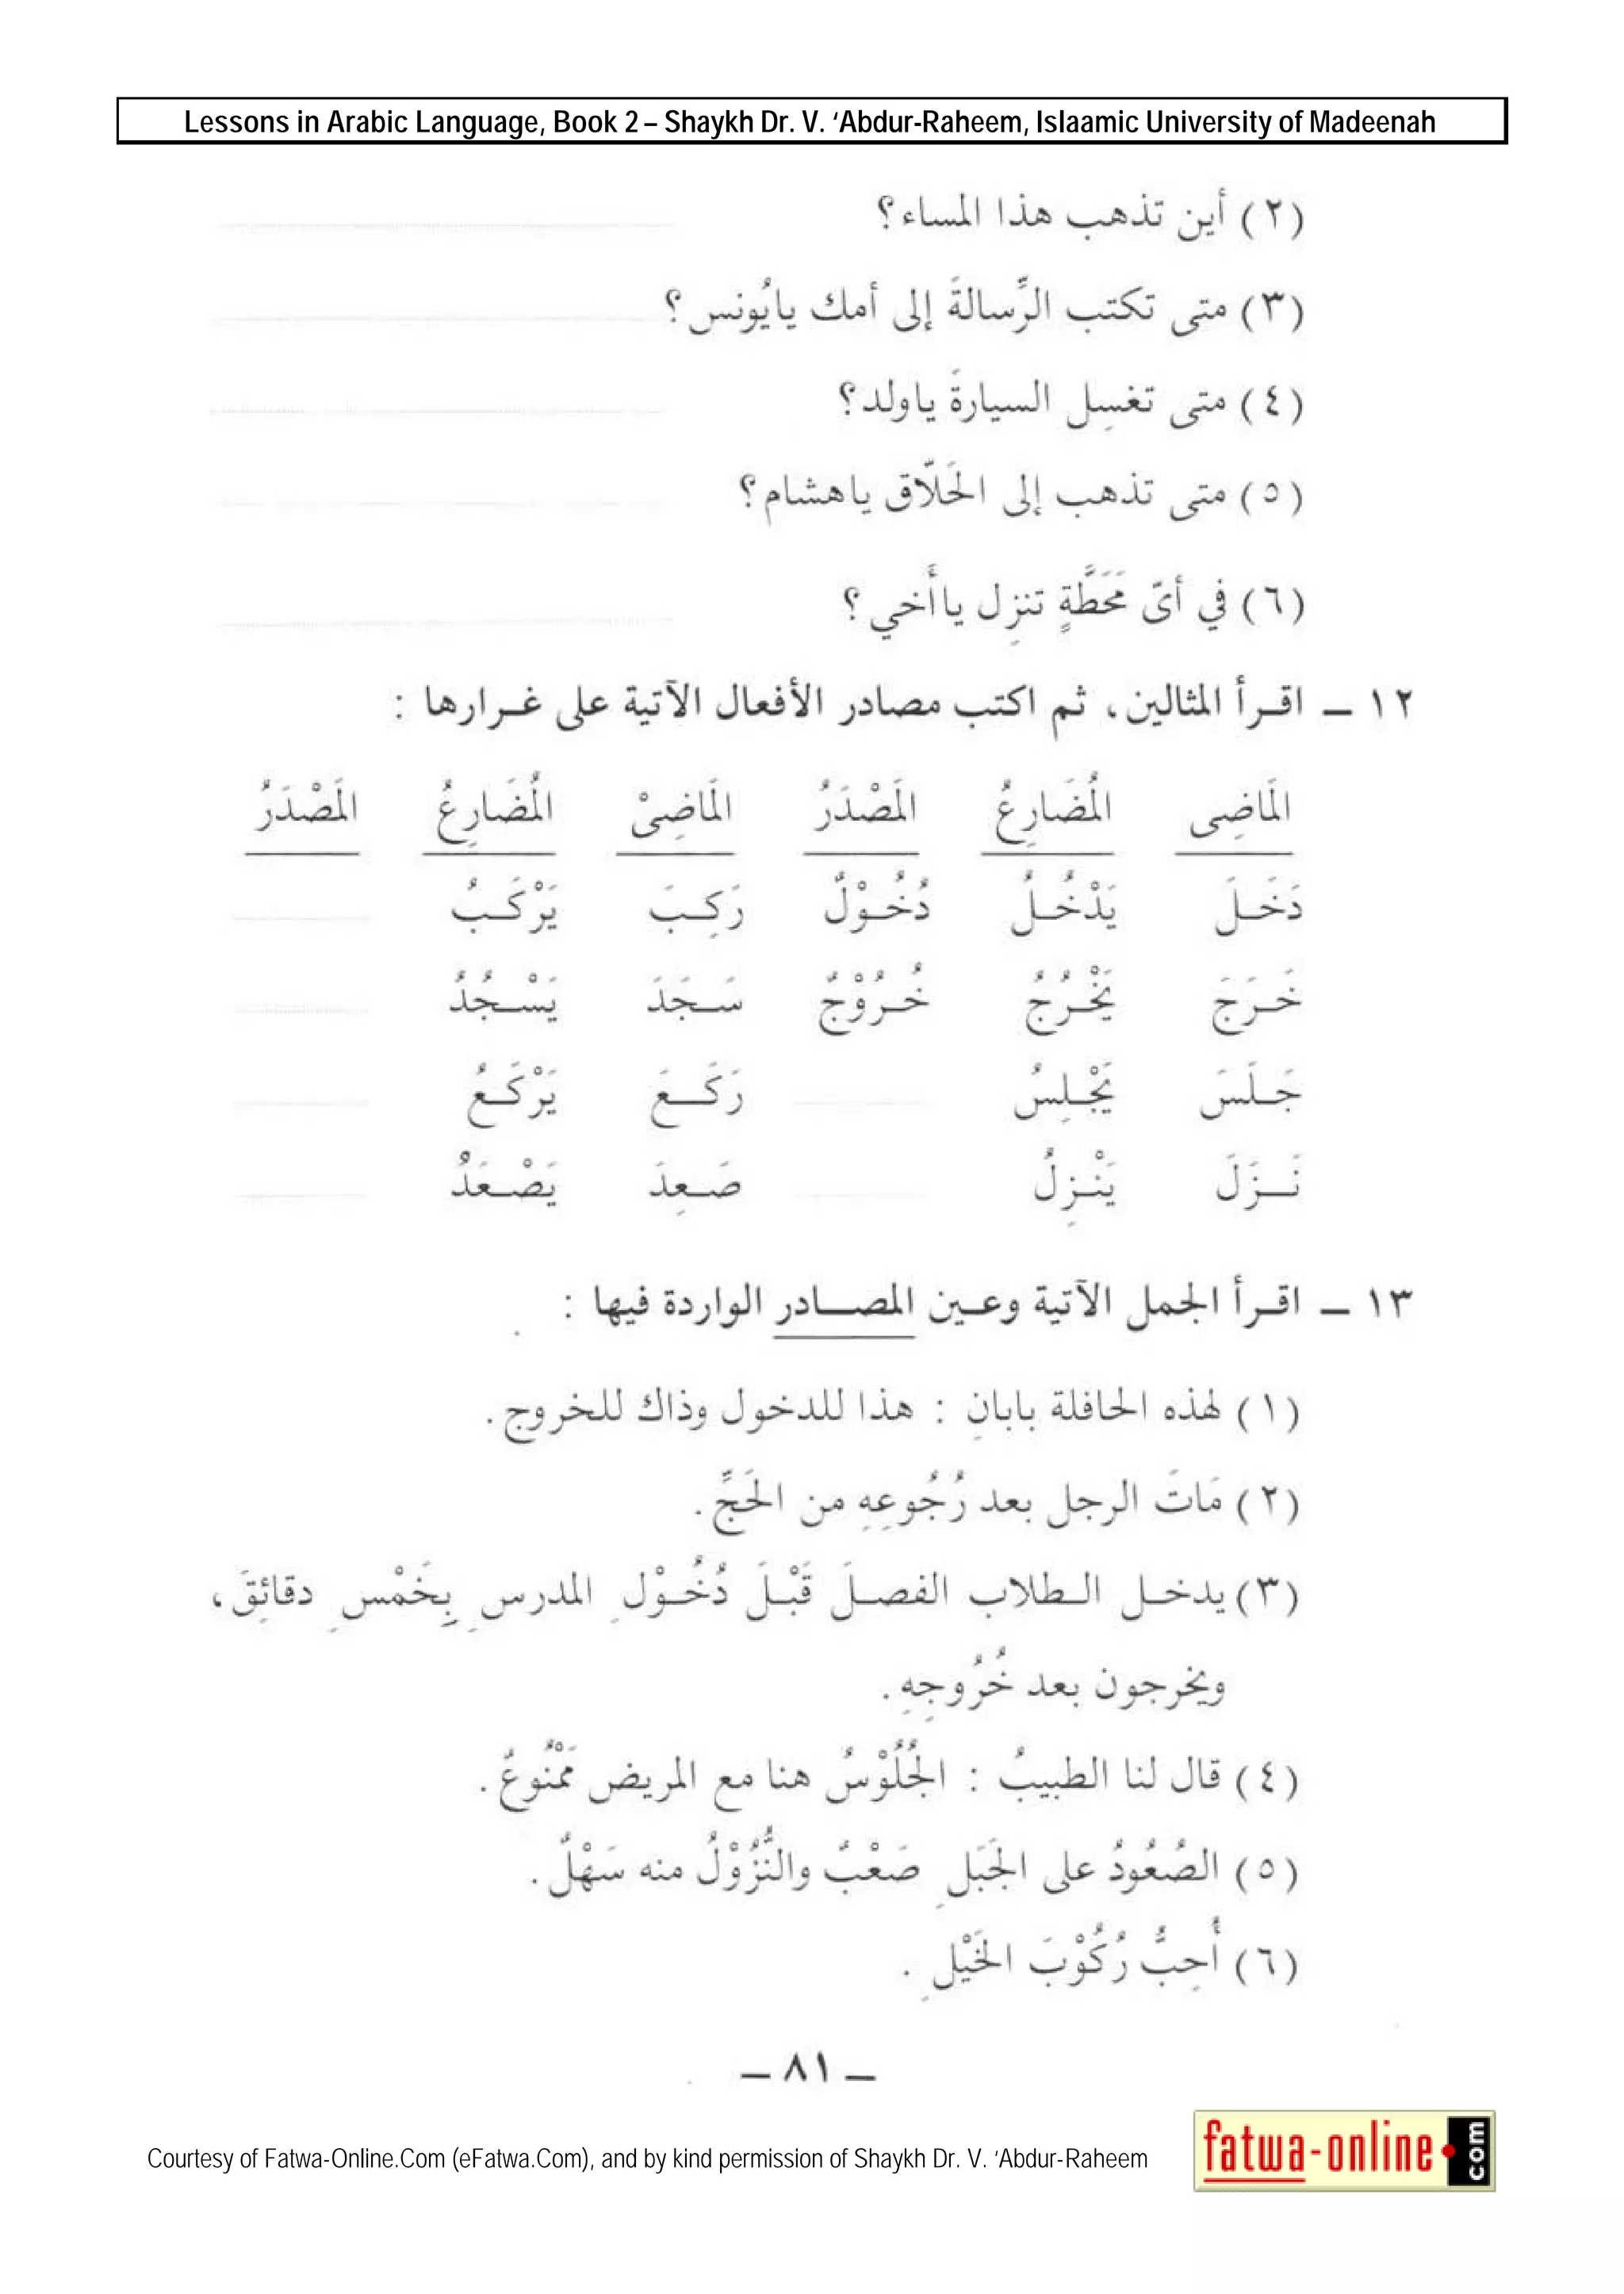 Lessons in Arabic Language, Book 2 – Shaykh Dr. V. ‘Abdur-Raheem, Islaamic University of Madeenah
(٢) أين تذهب هذا المساء؟
(٣) متى تكتب الرِّسالةَ إلى أمك يايُونس؟
(٤) متى تغسِل السيارةَ ياولد؟
(٥) متى تذهب إلى الحَلاَّق ياهشام؟
(٦) في أىّ مَحَطَّةٍ تنزِل ياأَخي؟
١٢ ــ اقرأ المثالين، ثم اكتب مصادر الأفعال الآتية على غرارها :
المَاضِى المُضَارِعُ المَصْدَرُ المَاضِىْ المُضَارِعُ المَصْدَرُ
دَخَلَ يَدْخُلُ دُخُوْلٌ رَكِبَ يَرْكَبُ
خَرَجَ يَخْرُجُ خُرُوْجٌ سَجَدَ يَسْجُدُ
جَلَسَ يَجْلِسُ رَكَعَ يَرْكَعُ
نَزَلَ يَنْزِلُ صَعِدَ يَصْعَدُ
١٣ ــ اقرأ الجمل الآتية وعين المصادر الواردة فيها :
(١) لهٰذه الحافلة بابانِ : هذا للدخول وذاك للخروج.
(٢) مَاتَ الرجل بعد رُجُوعِهِ من الحَجِّ.
(٣) يدخل الطلاب الفصلَ قَبْلَ دُخُوْلِ المدرسِ بِخَمْسِ دقائِقَ،
ويخرجون بعد خُرُوجِهِ.
(٤) قال لنا الطبيبُ : الجُلُوْسُ هنا مع المريض مَمْنُوعٌ.
(٥) الصُعُودُ على الجَبَلِ صَعْبٌ والنُّزُوْلُ منه سَهْلٌ.
(٦) أُحِبُّ رُكُوْبَ الخَيْلِ.
ــ ٨١ ــ
Courtesy of Fatwa-Online.Com (eFatwa.Com), and by kind permission of Shaykh Dr. V. ‘Abdur-Raheem
fatwa-online.com